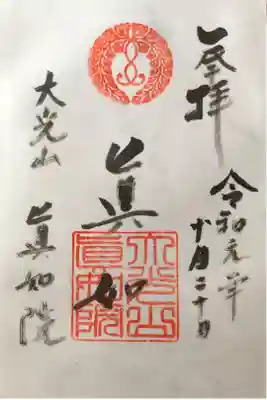 拝
令和元年
十月二十日
眞如
大光山
眞如院
大光山
眞如院